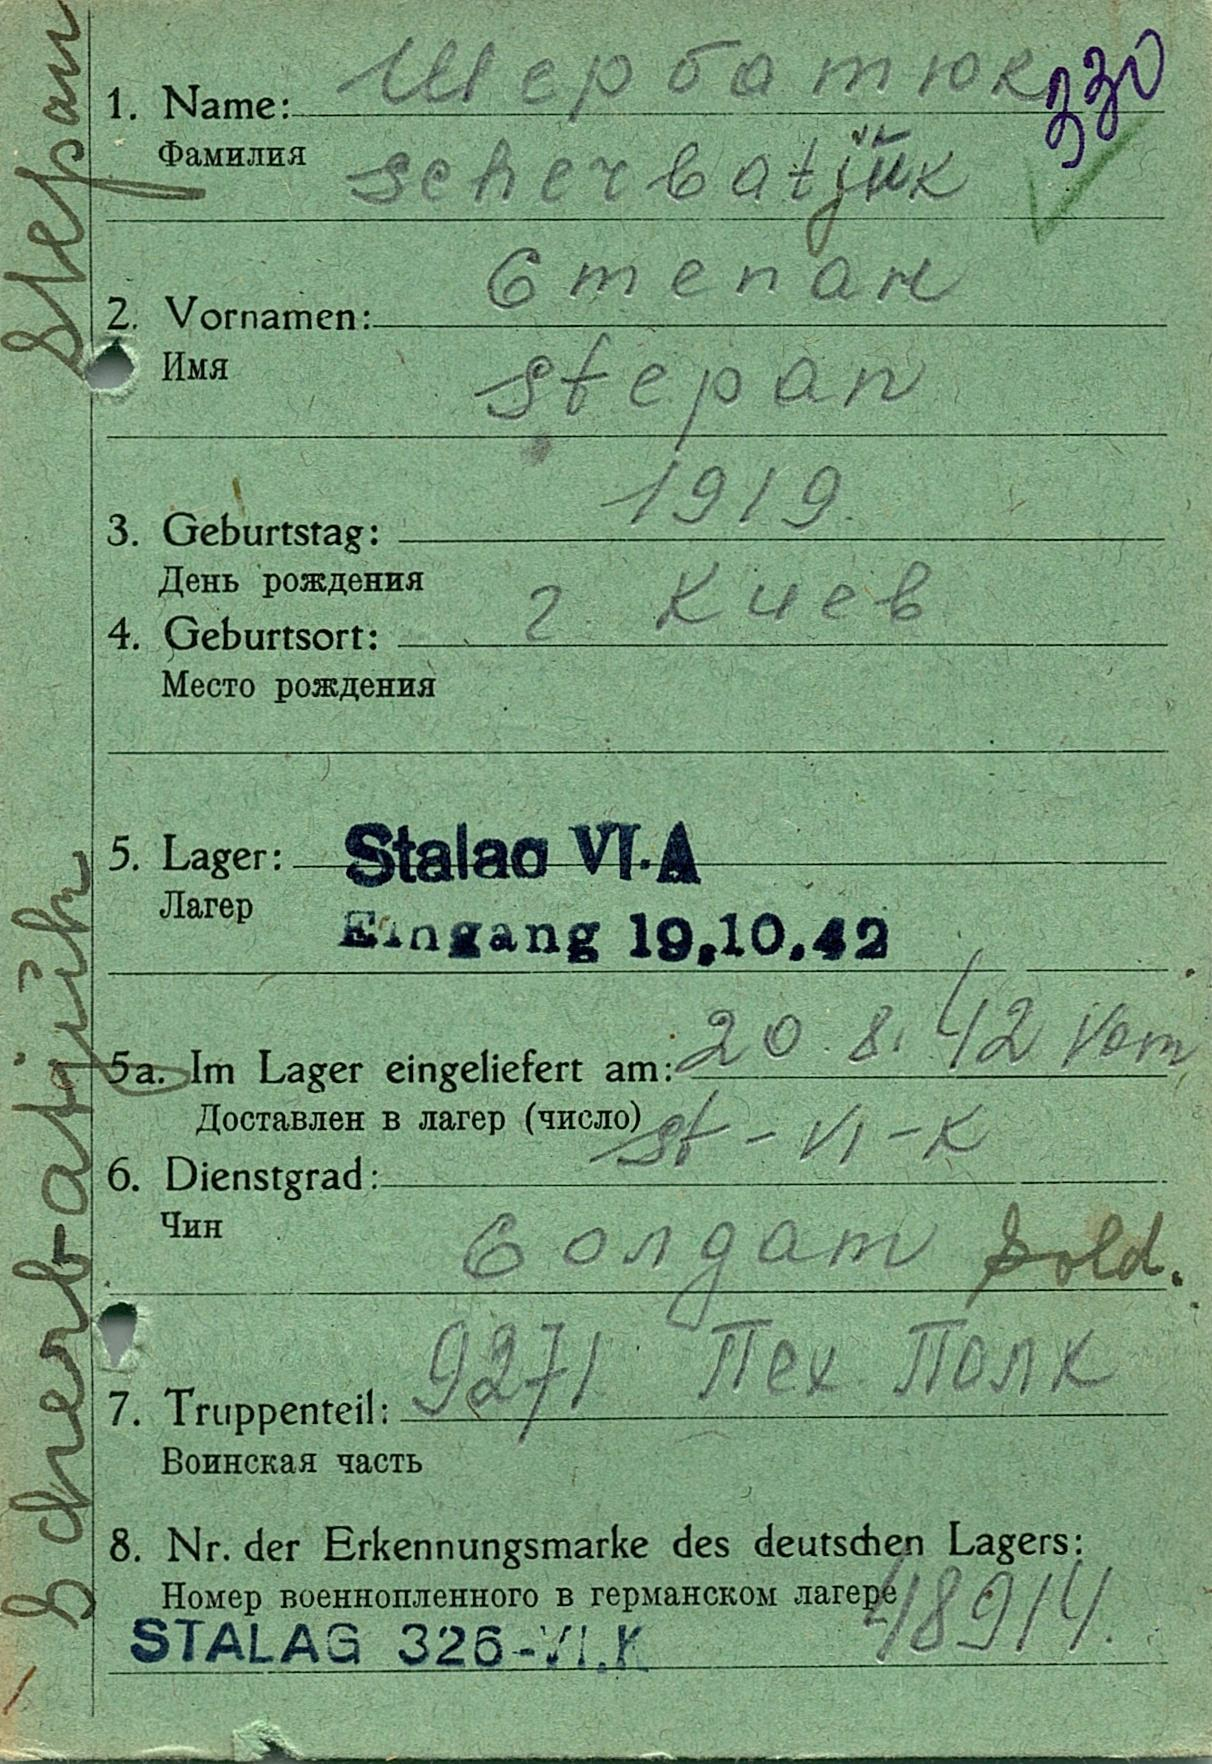 Щербатюк 330
1. Name:
Фамилия
Scherbatjük
Степан
2. Vornamen:
Имя
Stepan
1919
3. Geburtstag:
День рождения
г Киев
4. Geburtsort:
Место рождения
5. Lager: Stalag VI.A
Лагер
Eingang 19.10.42
5a. Im Lager eingeliefert am: 20.8.42 vom
Доставлен в лагер (число) St-VI-K
6. Dienstgrad:
Чин
Солдат Sold.
9271 Пех Полк
7. Truppenteil:
Воинская часть
8. Nr. der Erkennungsmarke des deutschen Lagers:
Номер военнопленного в германском лагере 48914.
STALAG 326-VI.K
Scherbatjük Stepan